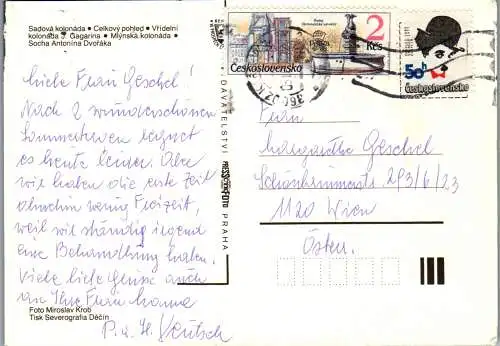 Sadová kolonáda - Celkový pohled - Vřídelní
kolonáda J. Gagarina - Mlýnská kolonáda -
Socha Antonína Dvořáka
Liebe Frau Geschel!
Nach 2 wunderschönen
Sommertagen regnet
es heute leider. Aber
wir haben die erste Zeit
ohnehin wenig Freizeit,
weil wir ständig irgend
eine Behandlung haben.
Viele liebe Grüsse auch
an Ihre Frau Mama
P. u. H.
Foto Miroslav Krob
Tisk Severografia Děčín
VYDAVATELSTVÍ PRESSFOTO PRAHA
2
Kčs
Československo
50h
Československo
Frau
Margarethe Geschel
293/6/23
1120 Wien
Österr.